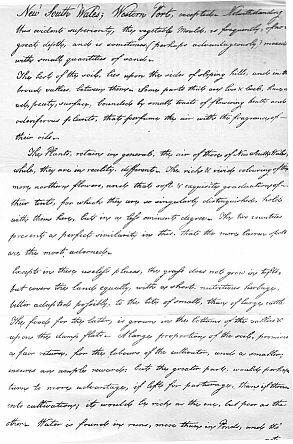 New South Wales; Western Port, excepted. Notwithstanding
this evident superiority, the vegetable mould, is frequently, of no
great depth, and is sometimes (perhaps advantageously) mixed
with small quantities of sand.
The best of the soil, lies upon the sides of sloping hills, and in the
broad vallies between them. Some parts that are low & level, have a
surface, bounded by small tracts of flowering heath and
odoriferous plants, that perfume the air with the fragrance of
their oils.
The Plants, retain in general, the air of those of New South Wales,
while, they are in reality, different. The rich & vivid colouring of the
more northern flowers, and that soft & exquisite graduation of
their tints, for which they are so singularly distinguished, hold
with them here, but in a less eminent degree. The two countries
present a perfect similarity in this, that the more barren spots
are the most adorned.
Except in these useless places, the grass does not grow in tufts,
but covers the land equally, with a short, nutritious herbage,
better adapted possibly, to the bite of small, than of large cattle.
The food for the latter, is grown in the bottoms of the vallies &
upon the damp flats. A large proportion of the soil, promises
a fair return, for the labours of the cultivator, and a smaller,
insures an ample reward: but the greater part, would perhaps
turn to more advantage, if left for pasturage, than if thrown
into cultivation; it would be rich as the one, but poor as the
other. Water is found in runs, more than in Ponds, and tho'